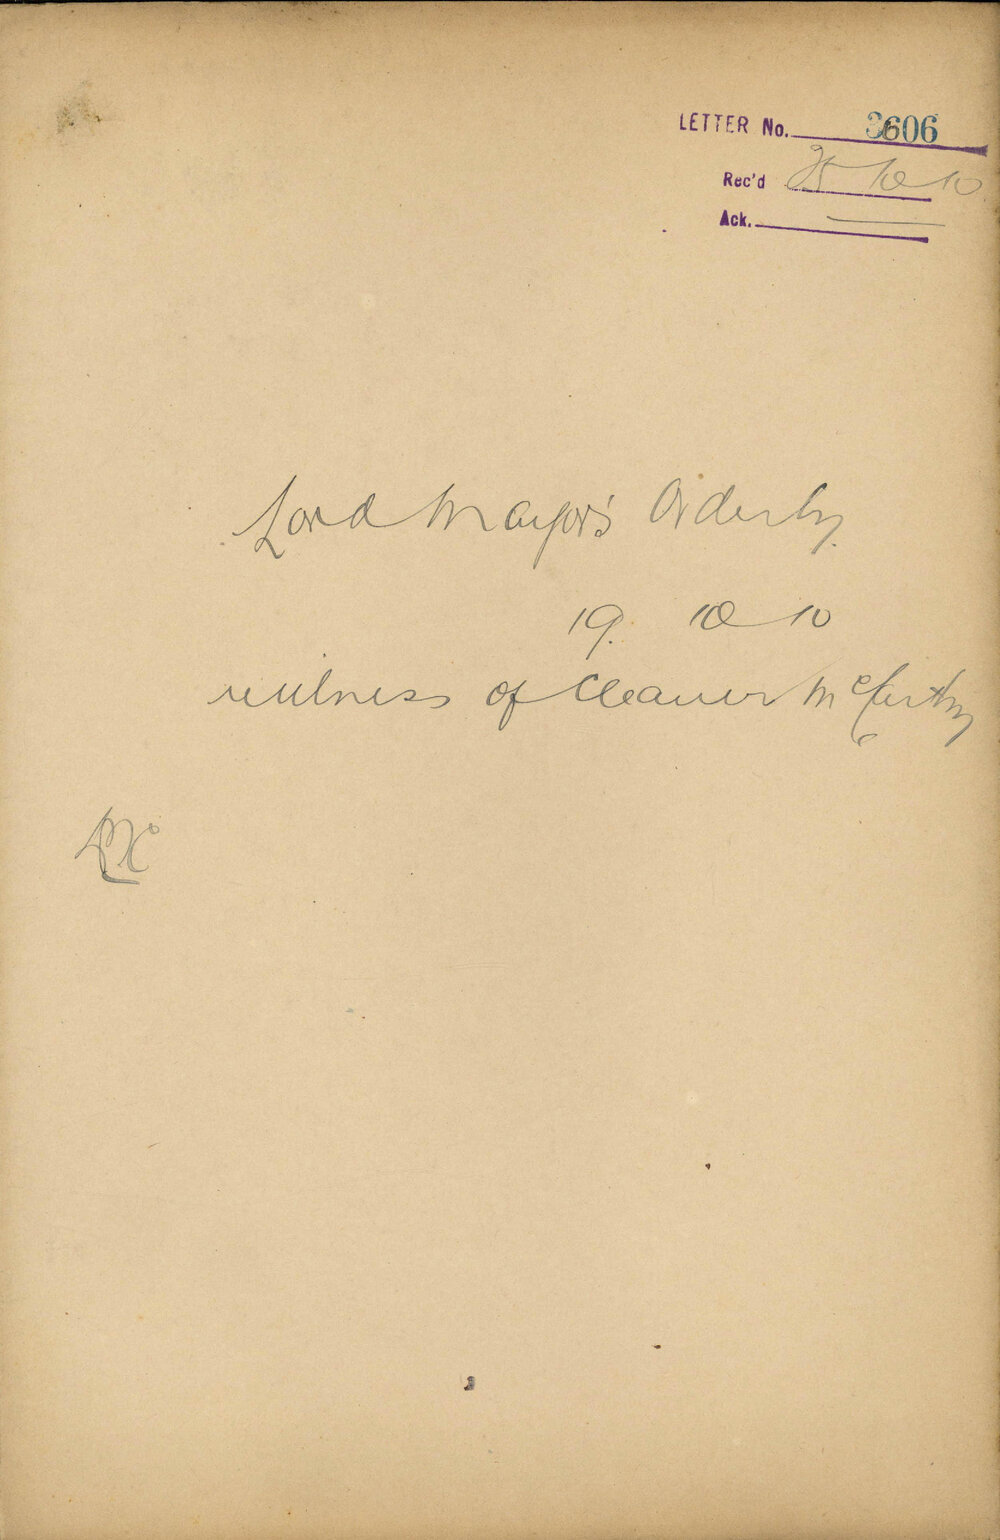 LETTER No. 3606
Rec'd 25 10 10
Ack.
Lord Mayor's Orderly.
19. 10 10
illness of Cleaner McCarthy